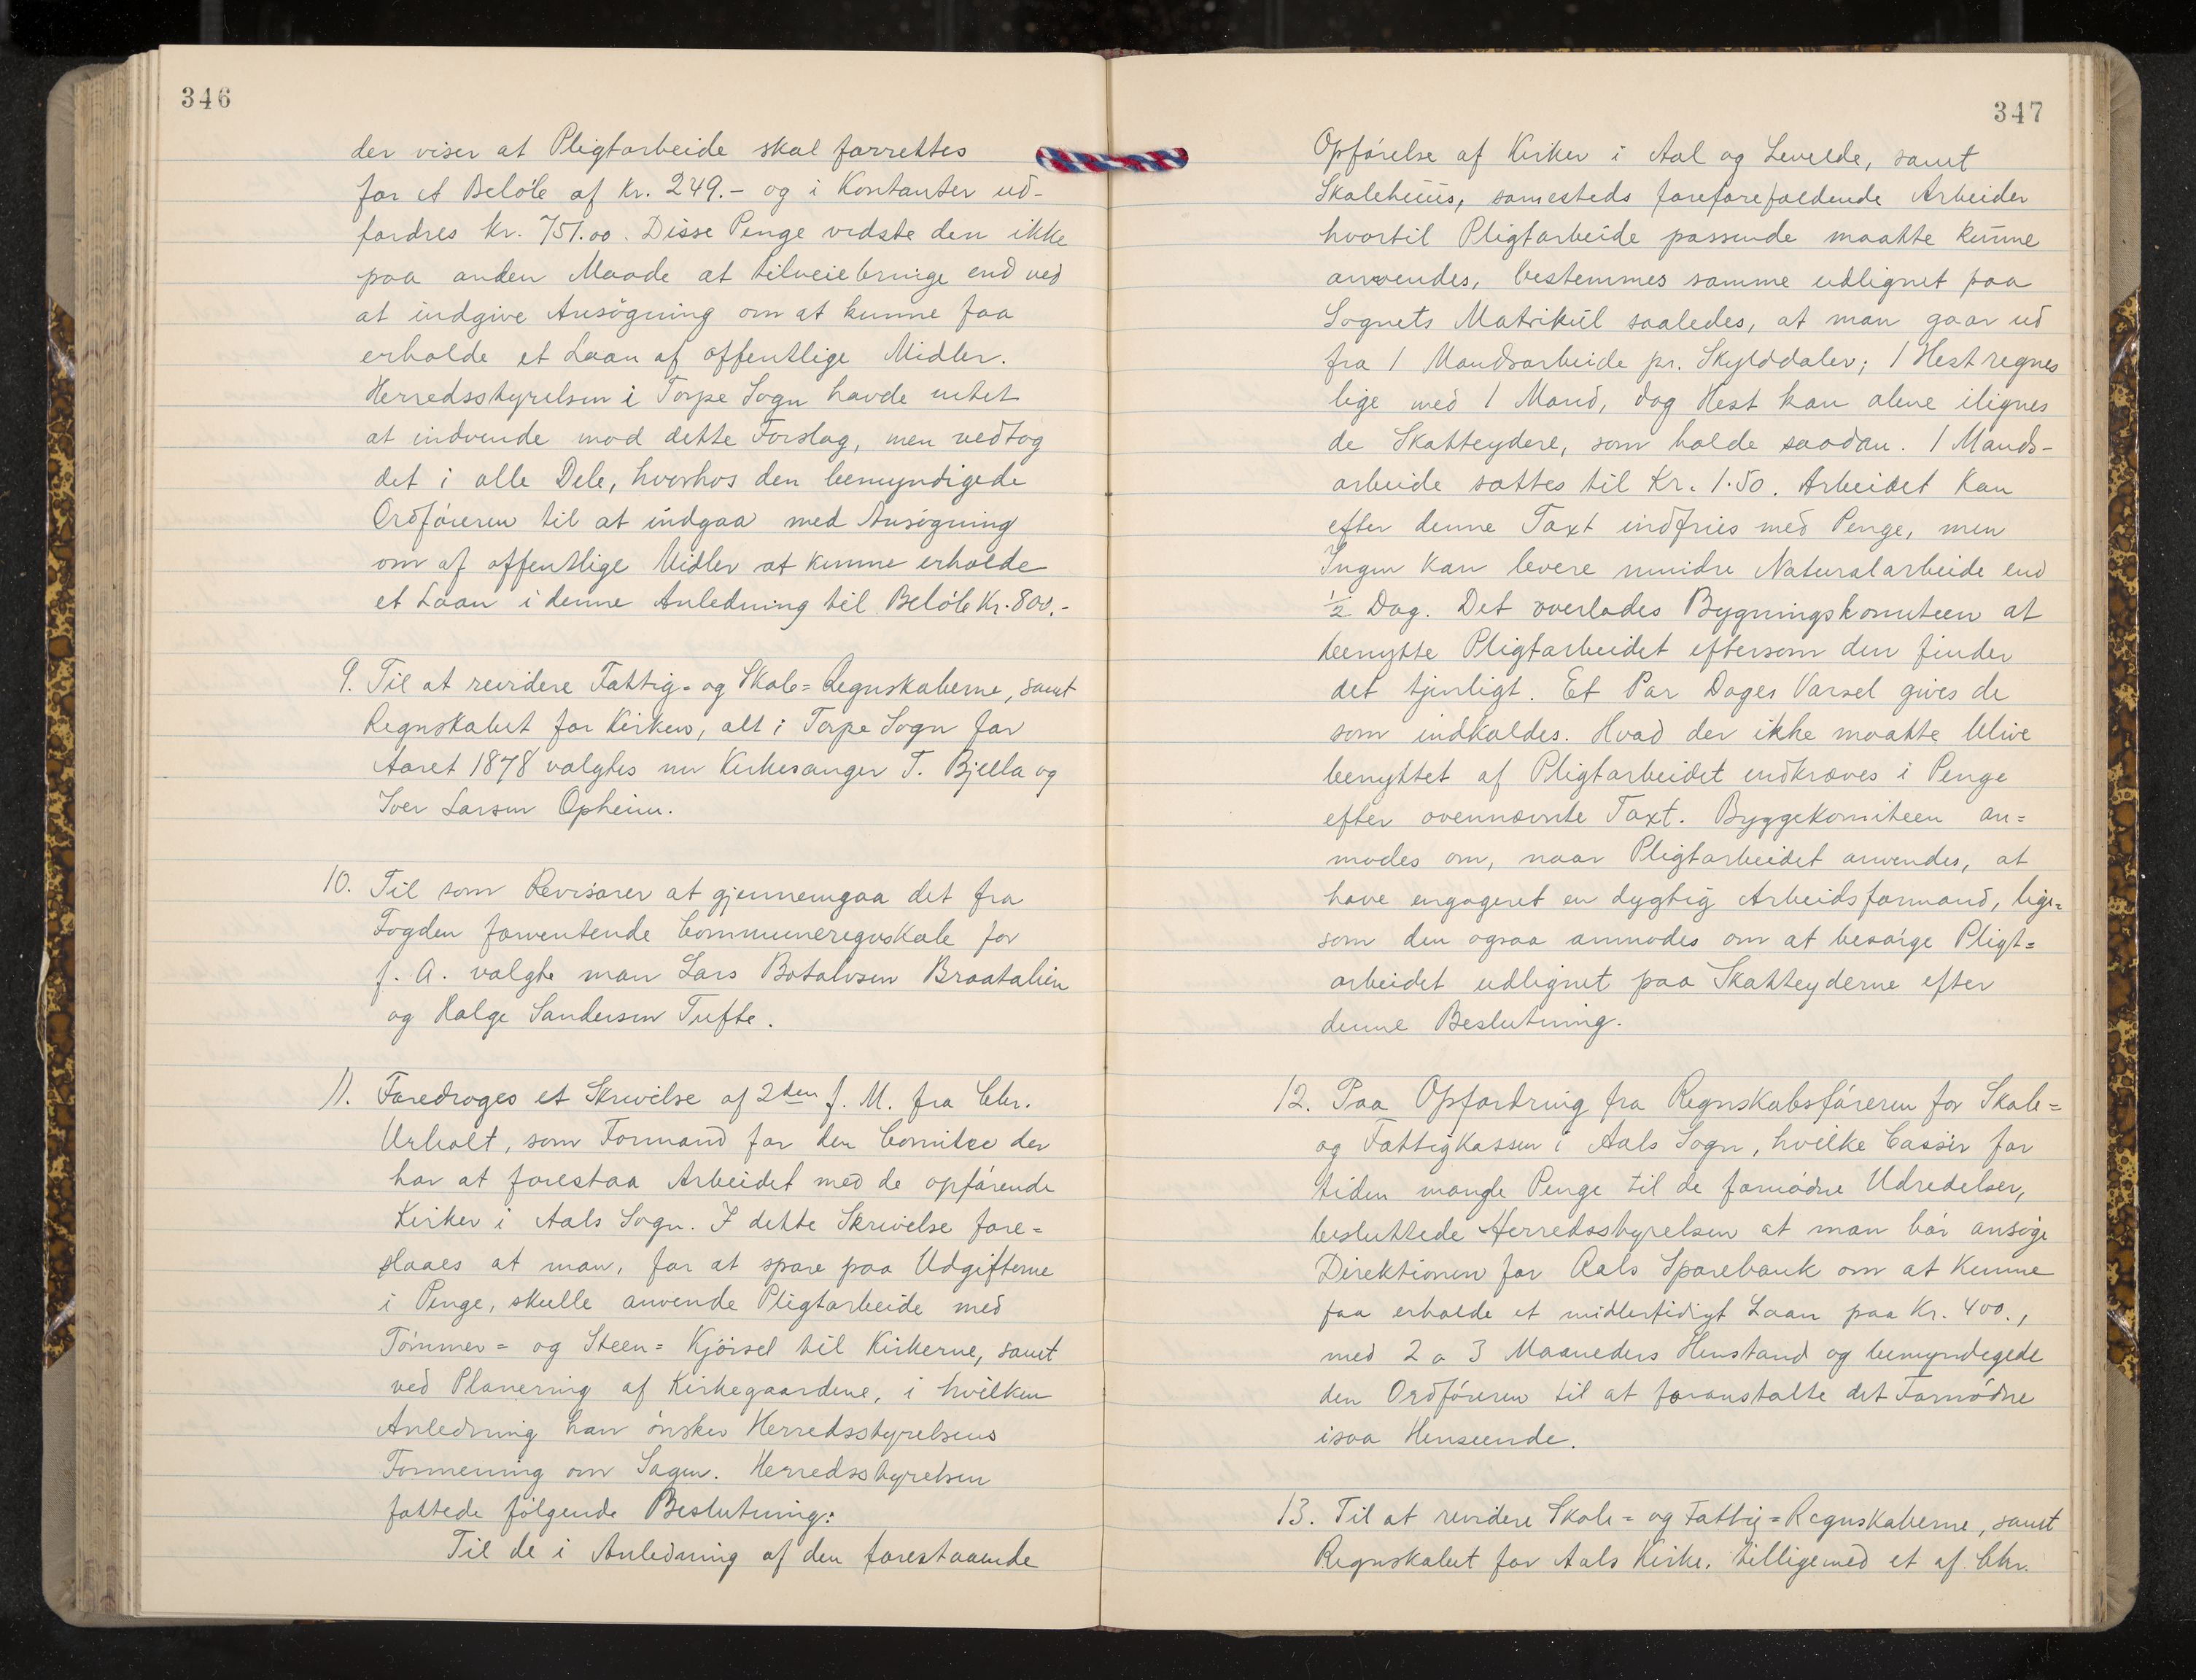 346
der viser at Pligtarbeide skal forrettes
for et Beløb af Kr. 249.- og i Kontanter ud-
fordres kr. 751.00. Disse Penge vidste den ikke
paa anden Maade at tilveiebringe end ved
at indgive Ansøgning om at kunne faa
erholde et Laan af offentlige Midler.
Herredsstyrelsen i Torpe Sogn havde intet
at indvende mod dette Forslag, men vedtog
det i alle Dele, hvorhos den bemyndigede
Ordføreren til at indgaa med Ansøgning
om af offentlige Midler at kunne erholde
et Laan i denne Anledning til Beløb Kr. 800.-
9. Til at revidere Fattig- og Skole= Regnskaberne, samt
Regnskabet for Kirken, alt i Torpe Sogn for
Aaret 1878 valgtes nu Kirkesanger T. Bjella og
Iver Larsen Opheim.
10. Til som Revisorer at gjennemgaa det fra
Fogden forventende Communeregnskab for
f. A. valgte man Lars Botolvsen Braatalien
og Holge Sandersen Tufte.
11. Foredroges et Skrivelse af 2den f. M. fra Chr.
Urholt, som Formand for den Comitee der
har at forestaa Arbeidet med de opførende
Kirker i Aals Sogn. I dette Skrivelse fore=
slaaes at man, for at spare paa Udgifterne
i Penge, skulle anvende Pligtarbeide med
Tømmer= og Steen= Kjørsel til Kirkerne, samt
ved Planering af Kirkegaardene, i hvilken
Anledning han ønsker Herredsstyrelsens
Formening om Sagen. Herredsstyrelsen
fattede følgende Beslutning:
Til de i Anledning af den forestaaende
347
Opførelse af Kirker i Aal og Levelde, samt
Skolehuus, samesteds foreforefaldende Arbeider
hvortil Pligtarbeide passende maatte kunne
anvendes, bestemmes samme udlignet paa
Sognets Matrikul saaledes, at man gaar ud
fra 1 Mandsarbeide pr. Skylddaler; 1 Hest regnes
lige med 1 Mand, dog Hest kan alene ilignes
de Skatteydere, som holde saadan. 1 Mands-
arbeide sættes til Kr. 1.50. Arbeidet kan
efter denne Taxt indfries med Penge, men
Ingen kan levere mindre Naturalarbeide end
½ Dag. Det overlades Bygningskomiteen at
benytte Pligtarbeidet eftersom den finder
det tjenligt. Et Par Dages Varsel gives de
som indkaldes. Hvad der ikke maatte blive
benyttet af Pligtarbeidet indkræves i Penge
efter ovennævnte Taxt. Byggekomiteen an=
modes om, naar Pligtarbeidet anvendes, at
have engageret en dygtig Arbeidsformand, lige=
som den ogsaa anmodes om at besørge Pligt=
arbeidet udlignet paa Skatteyderne efter
denne Beslutning.
12. Paa Opfordring fra Regnskabsføreren for Skole=
og Fattigkassen i Aals Sogn, hvilke Casser for
tiden mangle Penge til de fornødne Udredelser,
besluttede Herredsstyrelsen at man bør ansøge
Direktionen for Aals Sparebank om at kunne
faa erholde et midlertidigt Laan paa Kr. 400.,
med 2 a 3 Maaneders Henstand og bemyndegede
den Ordføreren til at foranstalte det Fornødne
isaa Henseende.
13. Til at revidere Skole= og Fattig= Regnskaberne, samt
Regnskabet for Aals Kirke, tilligemed et af Chr.